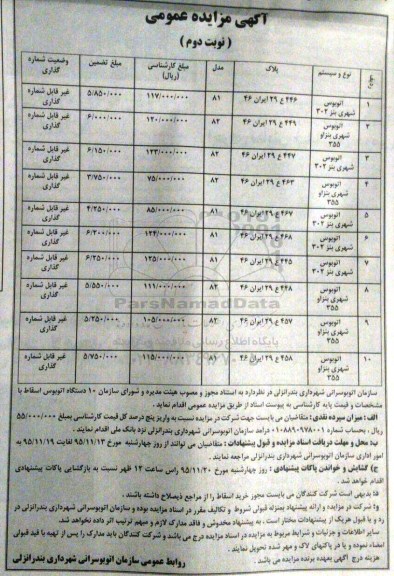 آگهی مزایده عمومی
( نوبت دوم )
ردیف	نوع و سیستم	پلاک	مدل	مبلغ کارشناسی (ریال)	مبلغ تضمین	وضعیت شماره گذاری
۱	اتوبوس شهری بنز ۳۰۲	۴۴۶ ع ۲۹ ایران ۴۶	۸۱	۱۱۷/۰۰۰/۰۰۰	۵/۸۵۰/۰۰۰	غیر قابل شماره گذاری
۲	اتوبوس شهری بنزاو ۳۵۵	۴۴۹ ع ۲۹ ایران ۴۶	۸۲	۱۲۰/۰۰۰/۰۰۰	۶/۰۰۰/۰۰۰	غیر قابل شماره گذاری
۳	اتوبوس شهری بنز ۳۰۲	۴۴۷ ع ۲۹ ایران ۴۶	۸۲	۱۲۳/۰۰۰/۰۰۰	۶/۱۵۰/۰۰۰	غیر قابل شماره گذاری
۴	اتوبوس شهری بنزاو ۳۵۵	۴۶۳ ع ۲۹ ایران ۴۶	۸۲	۷۵/۰۰۰/۰۰۰	۳/۷۵۰/۰۰۰	غیر قابل شماره گذاری
۵	اتوبوس شهری بنز ۳۰۲	۴۶۷ ع ۲۹ ایران ۴۶	۸۱	۸۵/۰۰۰/۰۰۰	۴/۲۵۰/۰۰۰	غیر قابل شماره گذاری
۶	اتوبوس شهری بنز ۳۰۲	۴۶۸ ع ۲۹ ایران ۴۶	۸۱	۱۲۴/۰۰۰/۰۰۰	۶/۲۰۰/۰۰۰	غیر قابل شماره گذاری
۷	اتوبوس شهری بنز ۳۰۲	ع ۲۹ ایران ۴۶	۸۱	۱۲۵/۰۰۰/۰۰۰	۶/۲۵۰/۰۰۰	غیر قابل شماره گذاری
۸	اتوبوس شهری بنزاو ۳۵۵	ع ۲۹ ایران ۴۶	۸۲	۱۱۱/۰۰۰/۰۰۰	۵/۵۵۰/۰۰۰	غیر قابل شماره گذاری
۹	اتوبوس شهری بنزاو ۳۵۵	۴۵۷ ع ۲۹ ایران ۴۶	۸۲	۱۰۵/۰۰۰/۰۰۰	۵/۲۵۰/۰۰۰	غیر قابل شماره گذاری
۱۰	اتوبوس شهری بنزاو ۳۵۵	۴۵۸ ع ۲۹ ایران ۴۶	۸۱	۱۱۵/۰۰۰/۰۰۰	۵/۷۵۰/۰۰۰	غیر قابل شماره گذاری
ParsNamadData
پایگاه اطلاع رسانی
سازمان اتوبوسرانی شهرداری بندرانزلی در نظردارد به استناد مجوز و مصوب هیئت مدیره و شورای سازمان ۱۰ دستگاه اتوبوس اسقاط با
مشخصات و قیمت پایه کارشناسی به پیوست اسناد از طریق مزایده عمومی اقدام نماید .
الف : میزان سپرده نقدی : متقاضیان می بایست جهت شرکت در مزایده نسبت به واریز پنج درصد کل قیمت کارشناسی بمبلغ ۵۵/۰۰۰/۰۰۰
ریال ، بحساب شماره ۰۱۰۸۸۹۰۹۷۸۰۰۱ درآمد سازمان اتوبوسرانی شهرداری بندرانزلی نزد بانک ملی اقدام نمایند .
ب: محل و مهلت دریافت اسناد مزایده و قبول پیشنهادات : متقاضیان می توانند از روز چهارشنبه مورخ ۹۵/۱۱/۱۳ لغایت ۹۵/۱۱/۱۹ به
امور اداری سازمان اتوبوسرانی شهرداری بندرانزلی مراجعه نمایند .
ج) گشایش و خواندن پاکات پیشنهادی : روز چهارشنبه مورخ ۹۵/۱۱/۲۰ راس ساعت ۱۲ ظهر نسبت به بازگشایی پاکات پیشنهادی
اقدام خواهد شد .
د) بدیهی است شرکت کنندگان می بایست مجوز خرید اسقاط را از مراجع ذیصلاح داشته باشند .
و) شرکت در مزایده و ارائه پیشنهاد بمنزله قبولی شروط و تکالیف مقرر در اسناد مزایده بوده و سازمان اتوبوسرانی شهرداری بندرانزلی در
رد و یا قبول هریک از پیشنهادات مختار است . به پیشنهاد مخدوش و فاقد مدارک لازم و مبهم ترتیب اثر داده نخواهد شد.
سایر اطلاعات و جزئیات و شرایط مربوط به مزایده در اسناد مزایده درج می باشد و شرکت کنندگان باید مدارک را پس از تهیه با قید قبولی
امضاء نموده و یا در پاکتهای لاک و مهر شده تحویل نمایند .
هزینه درج آگهی بعهده برنده مزایده می باشد .
روابط عمومی سازمان اتوبوسرانی شهرداری بندرانزلی